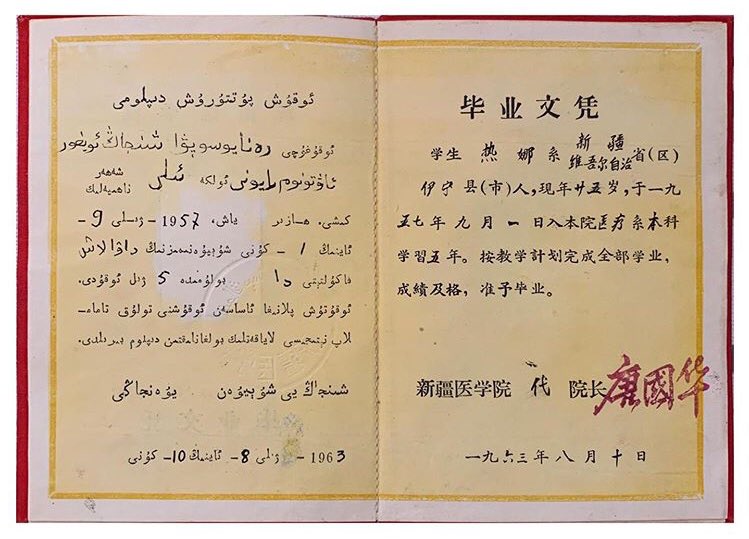 ئوقۇش پۈتتۈرۈش دىپلومى
ئوقۇغۇچى رەنايوسوپوۋا شىنجاڭ ئويغۇر
ئاۋتونوم رايونى ئولكە ئىلى شەھەر
ناھىيەلىك
كىشى. ھازىر ياش، 1957- ژىلى 9-
ئاينىڭ 1- كۇنى شۇبيۇەنىمىزنىڭ داۋالاش
فاكۇلتېتى دا بولۇمىدە 5 ژىل ئوقۇدى.
ئوقۇتۇش پلانىغا ئاساسەن ئوقۇشنى تولۇق تاما-
لاپ نەتىجىسى لاياقەتلىك بولغانلىقتىن دىپلوم بېرىلدى.
شىنجاڭ يى شۇېيۇەن يۇەنجاڭى
1963- ژىلى 8- ئاينىڭ 10- كۇنى
毕业文凭
学生 热娜 系 新疆维吾尔自治 省(区)
伊宁县(市)人,现年廿五岁,于一九
五七年九月一日入本院医疗系本科
学習五年。按教学計划完成全部学业,
成績及格,准予毕业。
新疆医学院 代 院长 唐國华
一九六三年八月十日